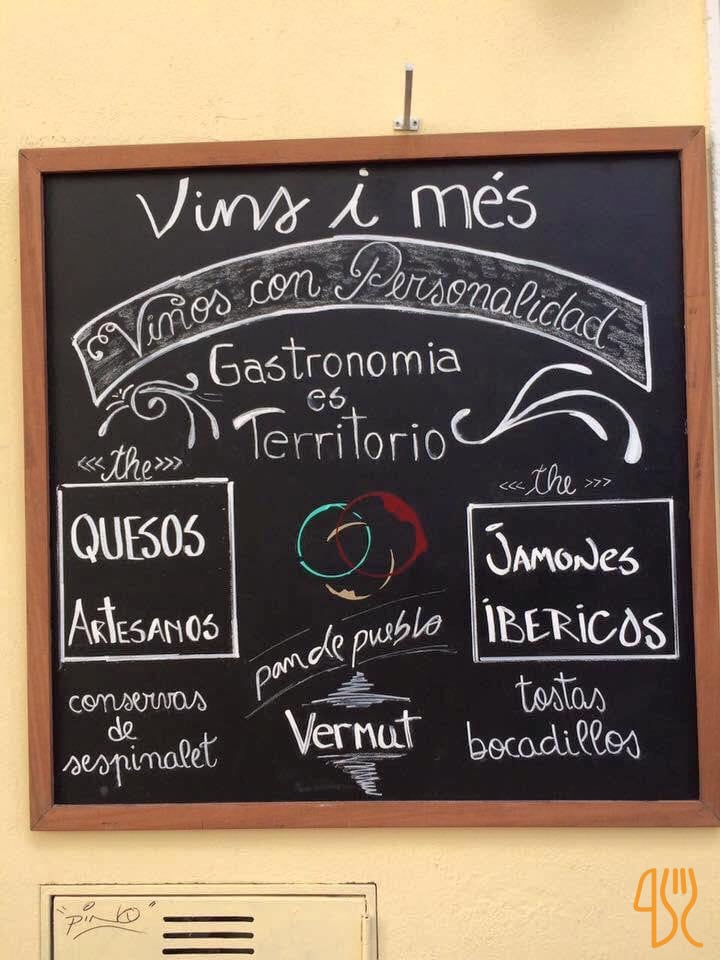 Vins i més
Vinos con Personalidad
Gastronomia
es
Territorio
<<<the>>>
QUESOS
ARTESANOS
conservas
de
sespinalet
pan de pueblo
Vermut
<<<the>>>
JAMONES
IBERICOS
tostas
bocadillos
"PINKO"